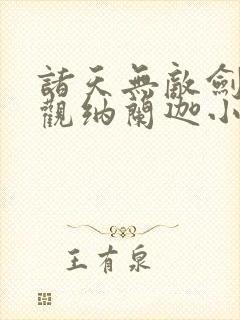 諸天無敵劍
觀納蘭迦小
王有泉